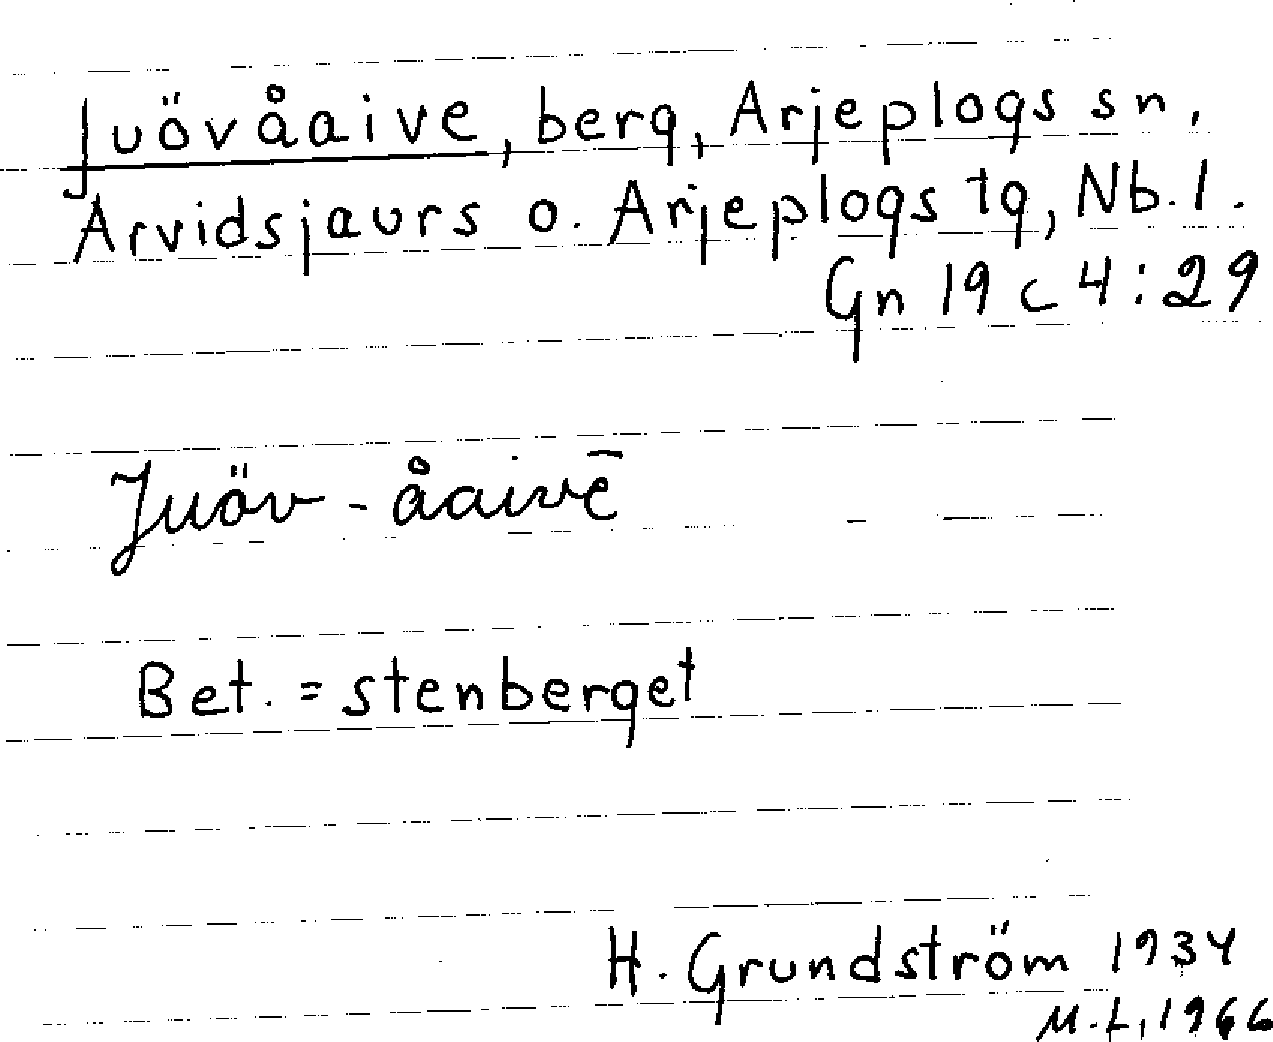 Juövåaive, berg, Arjeplogs sn,
Arvidsjaurs o. Arjeplogs tg, Nb.l.
Gn 19 c 4:29
Juöv-åaivē
Bet. = stenberget
H. Grundström 1934
M.L, 1966